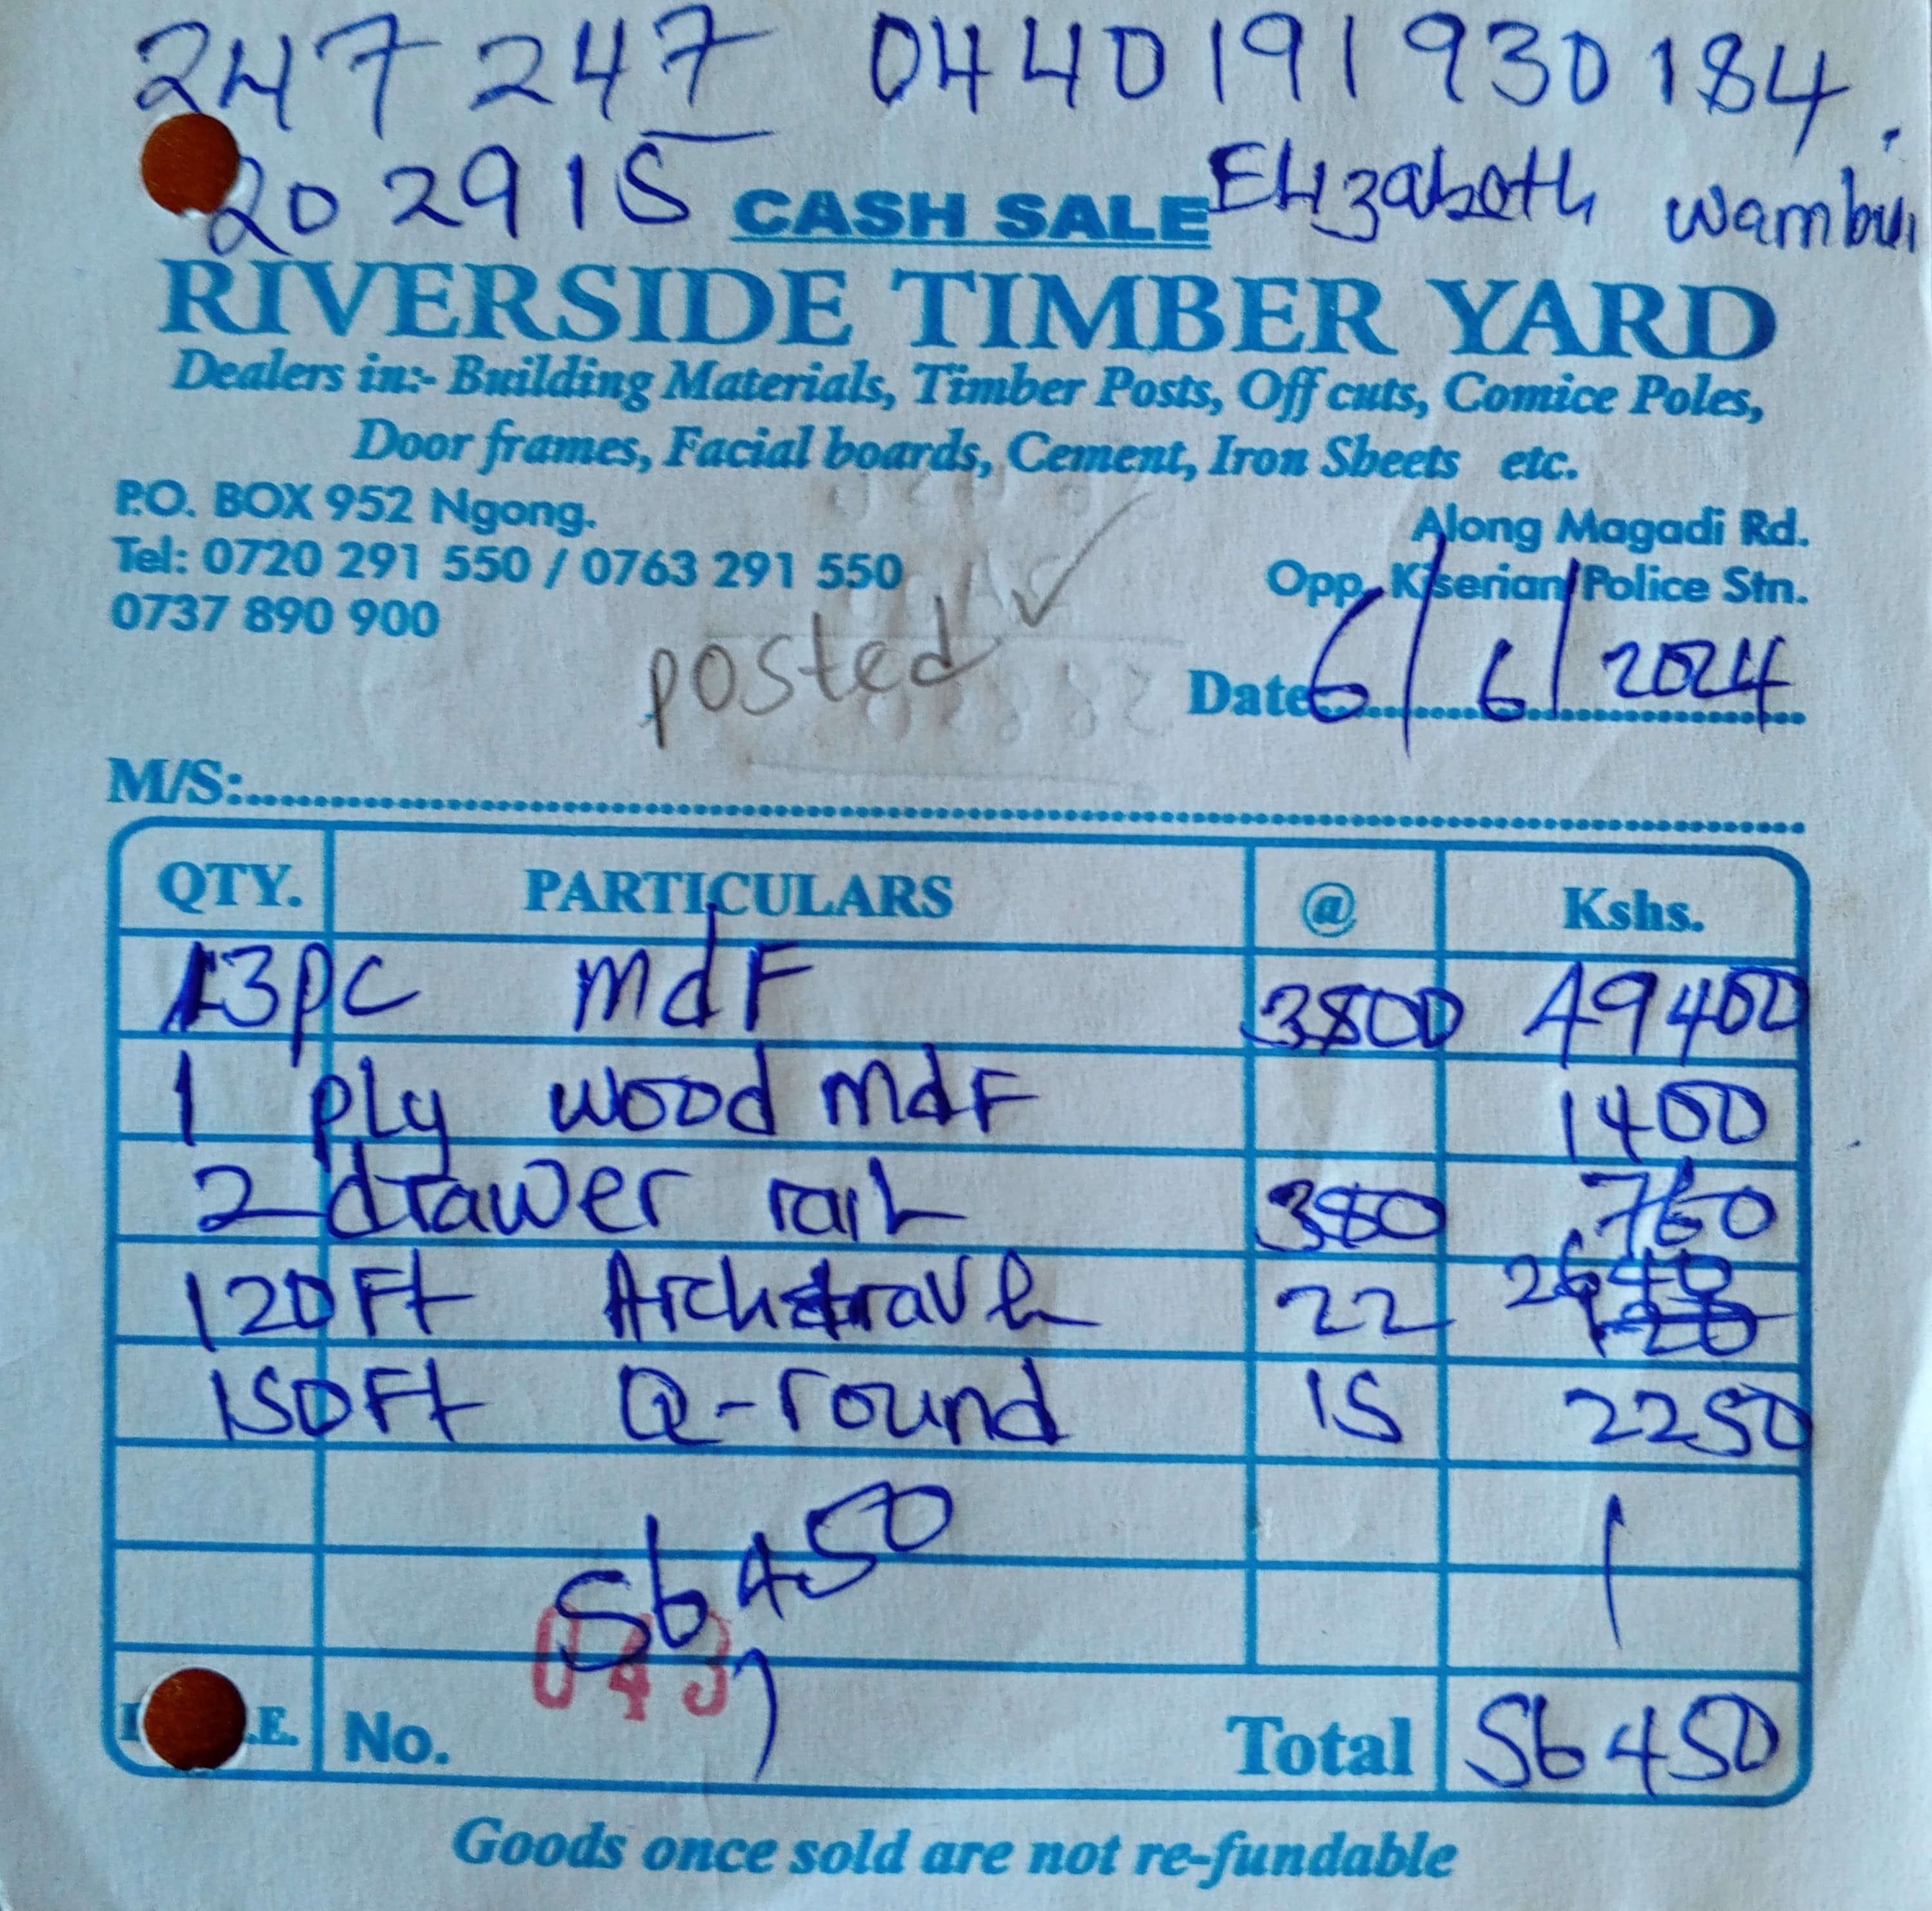 247 247 0440191930184.
202915 Elizabeth Wambui
CASH SALE
RIVERSIDE TIMBER YARD
Dealers in:- Building Materials, Timber Posts, Off cuts, Comice Poles,
Door frames, Facial boards, Cement, Iron Sheets etc.
P.O. BOX 952 Ngong.
Tel: 0720 291 550 / 0763 291 550
0737 890 900
Along Magadi Rd.
Opp. Kiserian Police Stn.
posted ✓
Date 6/6/2024
M/S:
QTY. PARTICULARS @ Kshs.
13pc mdF 3800 49400
1 ply wood mdF 1400
2 drawer rail 380 760
120Ft Architrave 22 2640
150Ft Q-round 15 2250
56450
043
E. No. Total 56450
Goods once sold are not re-fundable